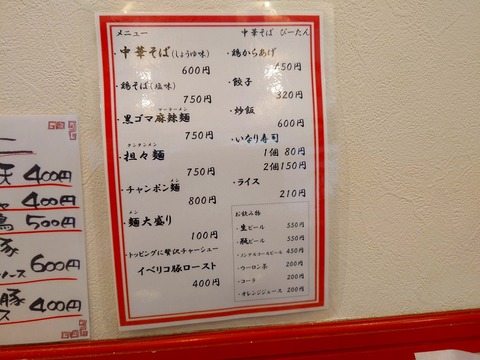 メニュー
中華そば ぴーたん
・中華そば(しょうゆ味)
600円
・鶏そば(塩味)
750円
マーラーメン
・黒ゴマ麻辣麺
750円
タンタンメン
・担々麺
750円
メン
・チャンポン麺
800円
メン
・麺大盛り
100円
・トッピングに贅沢チャーシュー
イベリコ豚ロースト
400円
・鶏からあげ
450円
・餃子
320円
・炒飯
600円
・いなり寿司
1個 80円
2個150円
・ライス
210円
お飲み物
・生ビール 550円
・瓶ビール 550円
・ノンアルコールビール 450円
・ウーロン茶 200円
・コーラ 200円
・オレンジジュース 200円
天 400円
400円
500円
豚
600円
豚
ス 400円